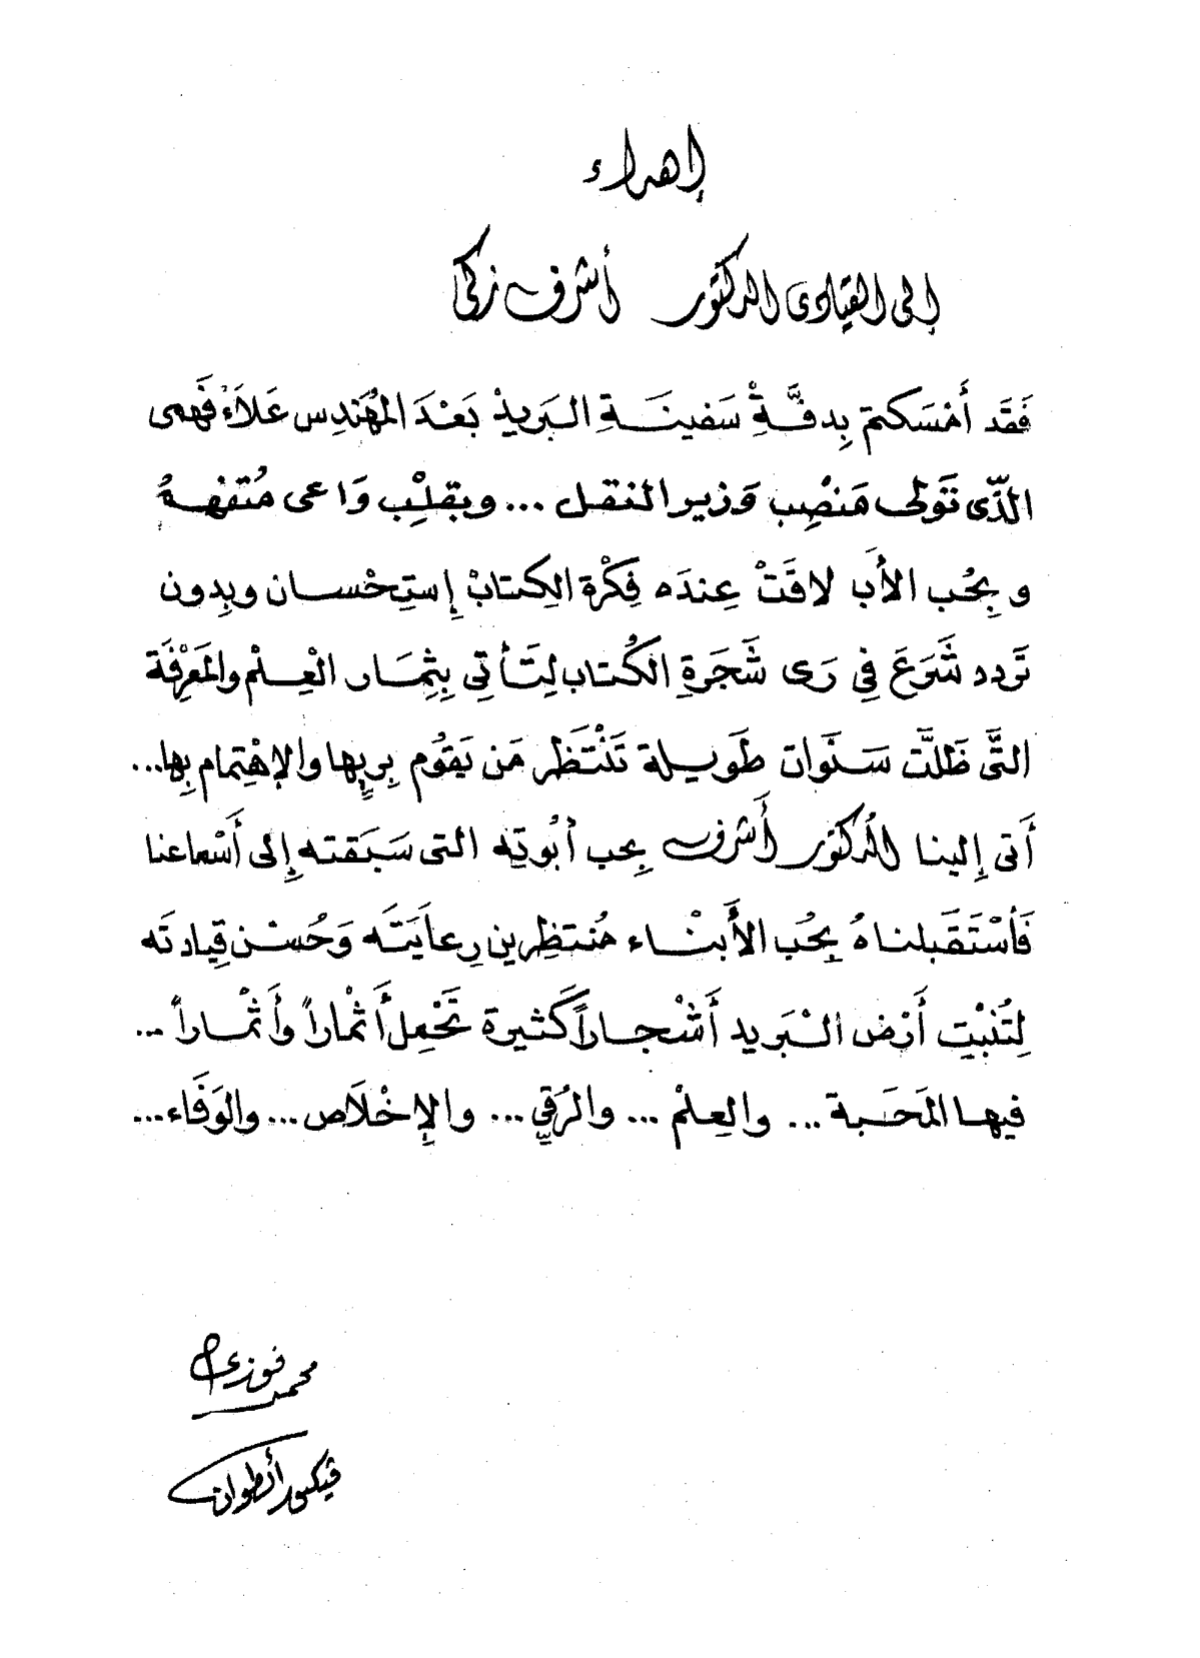 إهداء
إلى القيادى الدكتور أشرف زكى
فَقَد أمْسَكتم بِدفَّةْ سَفينَةِ البَريدْ بَعْدَ المُهَندِس عَلاَءْ فَهمى
الذّى تَولى مَنصْبِ وَزير النقل ... وبقلْبِ وَاعى مُتفهمُ
و بِحُب الأَب لاقَتْ عِندَه فِكْرة الِكتابْ إستِحْسان وبِدون
تَردد شَرَعَ فِي رَى شَجَرَةِ الكُتاب لِتَأتى بِثِمَار الْعِلمْ والمَعْرِفَة
التَّى ظَلَّت سَنَوات طَويلة تَنْتَظر مَن يَقوُم بِرِيها والإهْتِمام بِها...
أَتى إلينا الدكتور أَشرف بِحب أبُوتِه التى سَبَقته إلى أَسْماعنا
فَأسْتَقَبلناهُ بِحُب الأَبنْاء مُنتظِرين رِعايَتَه وَحُسْن قِيادتَه
لِتُنبْتِ أَرْض البْرَيد أَشْجاراً كَثيرة تَحْمِل أَثْماراً وأَثْماراً ...
فيها المَحَبة ... والعِلمْ ... والرُقي ... والإخْلاَص ... والوَفَاء ...
محمد فوزى
ڤيكتور أنطوان